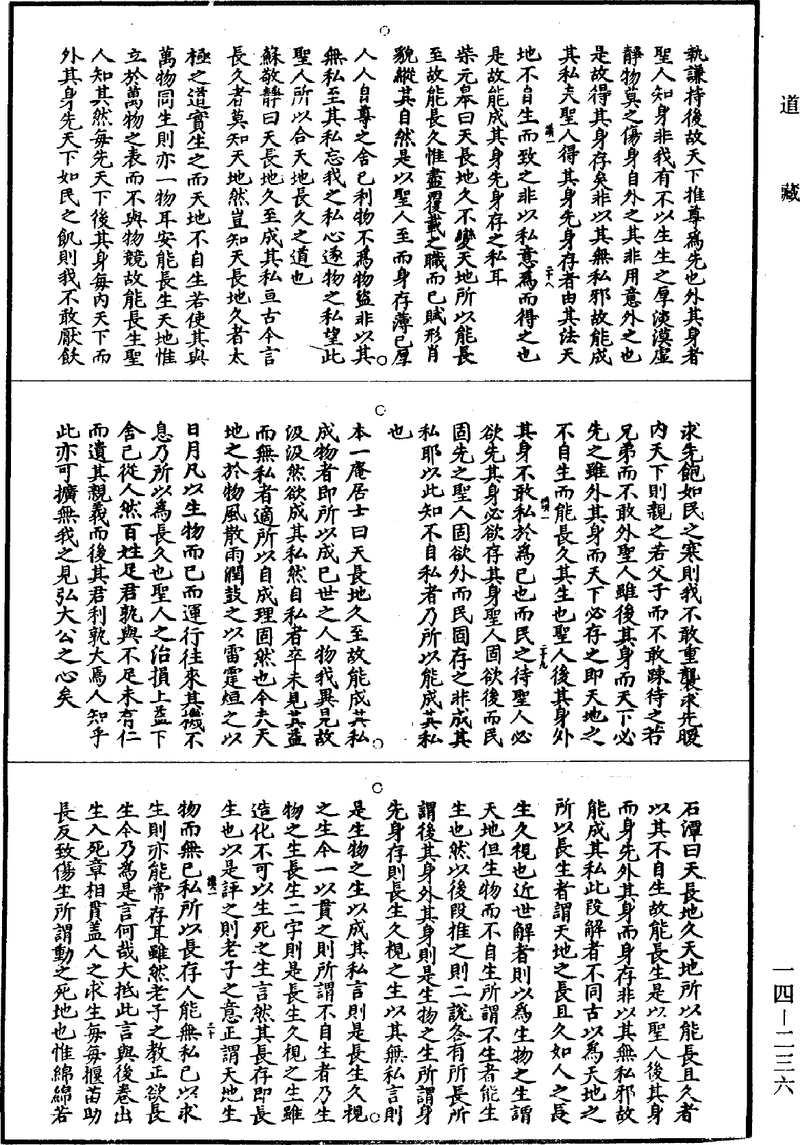 道藏
執謙持後故天下推尊為先也外其身者
聖人知身非我有不以生生之厚淡漠虛
靜物莫之傷身自外之其非用意外之也
是故得其身存矣非以其無私邪故能成
其私夫聖人得其身先身存者由其法天
讚一
二十八
地不自生而致之非以私意為而得之也
是故能成其身先身存之私耳
柴元皋曰天長地久不變天地所以能長
至故能長久惟盡覆載之職而已賦形肖
貌縱其自然是以聖人至而身存薄己厚
人人自尊之舍己利物不為物盜非以其
無私至其私忘我之私心遂物之私望此
聖人所以合天地長久之道也
蘇敬靜曰天長地久至成其私亘古今言
長久者莫知天地然豈知天長地久者太
極之道實生之而天地不自生若使其與
萬物同生則亦一物耳安能長生天地惟
立於萬物之表而不與物競故能長生聖
人知其然每先天下後其身每內天下而
外其身先天下如民之飢則我不敢厭飫
求先飽如民之寒則我不敢重襲求先暖
內天下則親之若父子而不敢踈待之若
兄弟而不敢外聖人雖後其身而天下必
先之雖外其身而天下必存之即天地之
不自生而能長久其生也聖人後其身外
讚一
二十九
其身不敢私於為己也而民之待聖人必
欲先其身必欲存其身聖人固欲後而民
固先之聖人固欲外而民固存之非成其
私耶以此知不自私者乃所以能成其私
也
本一庵居士曰天長地久至故能成其私
成物者即所以成己世之人物我異見故
汲汲然欲成其私然自私者卒未見其益
而無私者適所以自成理固然也今夫天
地之於物風散雨潤鼓之以雷霆烜之以
日月凡以生物而已而運行往來其機不
息乃所以為長久也聖人之治損上益下
舍己從人然百姓足君孰與不足未有仁
而遺其親義而後其君利孰大焉人知乎
此亦可擴無我之見弘大公之心矣
石潭曰天長地久天地所以能長且久者
以其不自生故能長生是以聖人後其身
而身先外其身而身存非以其無私邪故
能成其私此段解者不同古以為天地之
所以長生者謂天地之長且久如人之長
生久視也近世解者則以為生物之生謂
天地但生物而不自生所謂不生者能生
生也然以後段推之則二說各有所長所
謂後其身外其身則是生物之生所謂身
先身存則長生久視之生以其無私言則
是生物之生以成其私言則是長生久視
之生今一以貫之則所謂不自生者乃生
物之生長生二字則是長生久視之生雖
造化不可以生死之生言然其長存即長
生也以是評之則老子之意正謂天地生
讚一
三十
物而無己私所以長存人能無私己以求
生則亦能常存耳雖然老子之教正欲長
生今乃為是言何哉大抵此言與後卷出
生入死章相貫盖人之求生每每揠苗助
長反致傷生所謂動之死地也惟綿綿若
一四－二三六